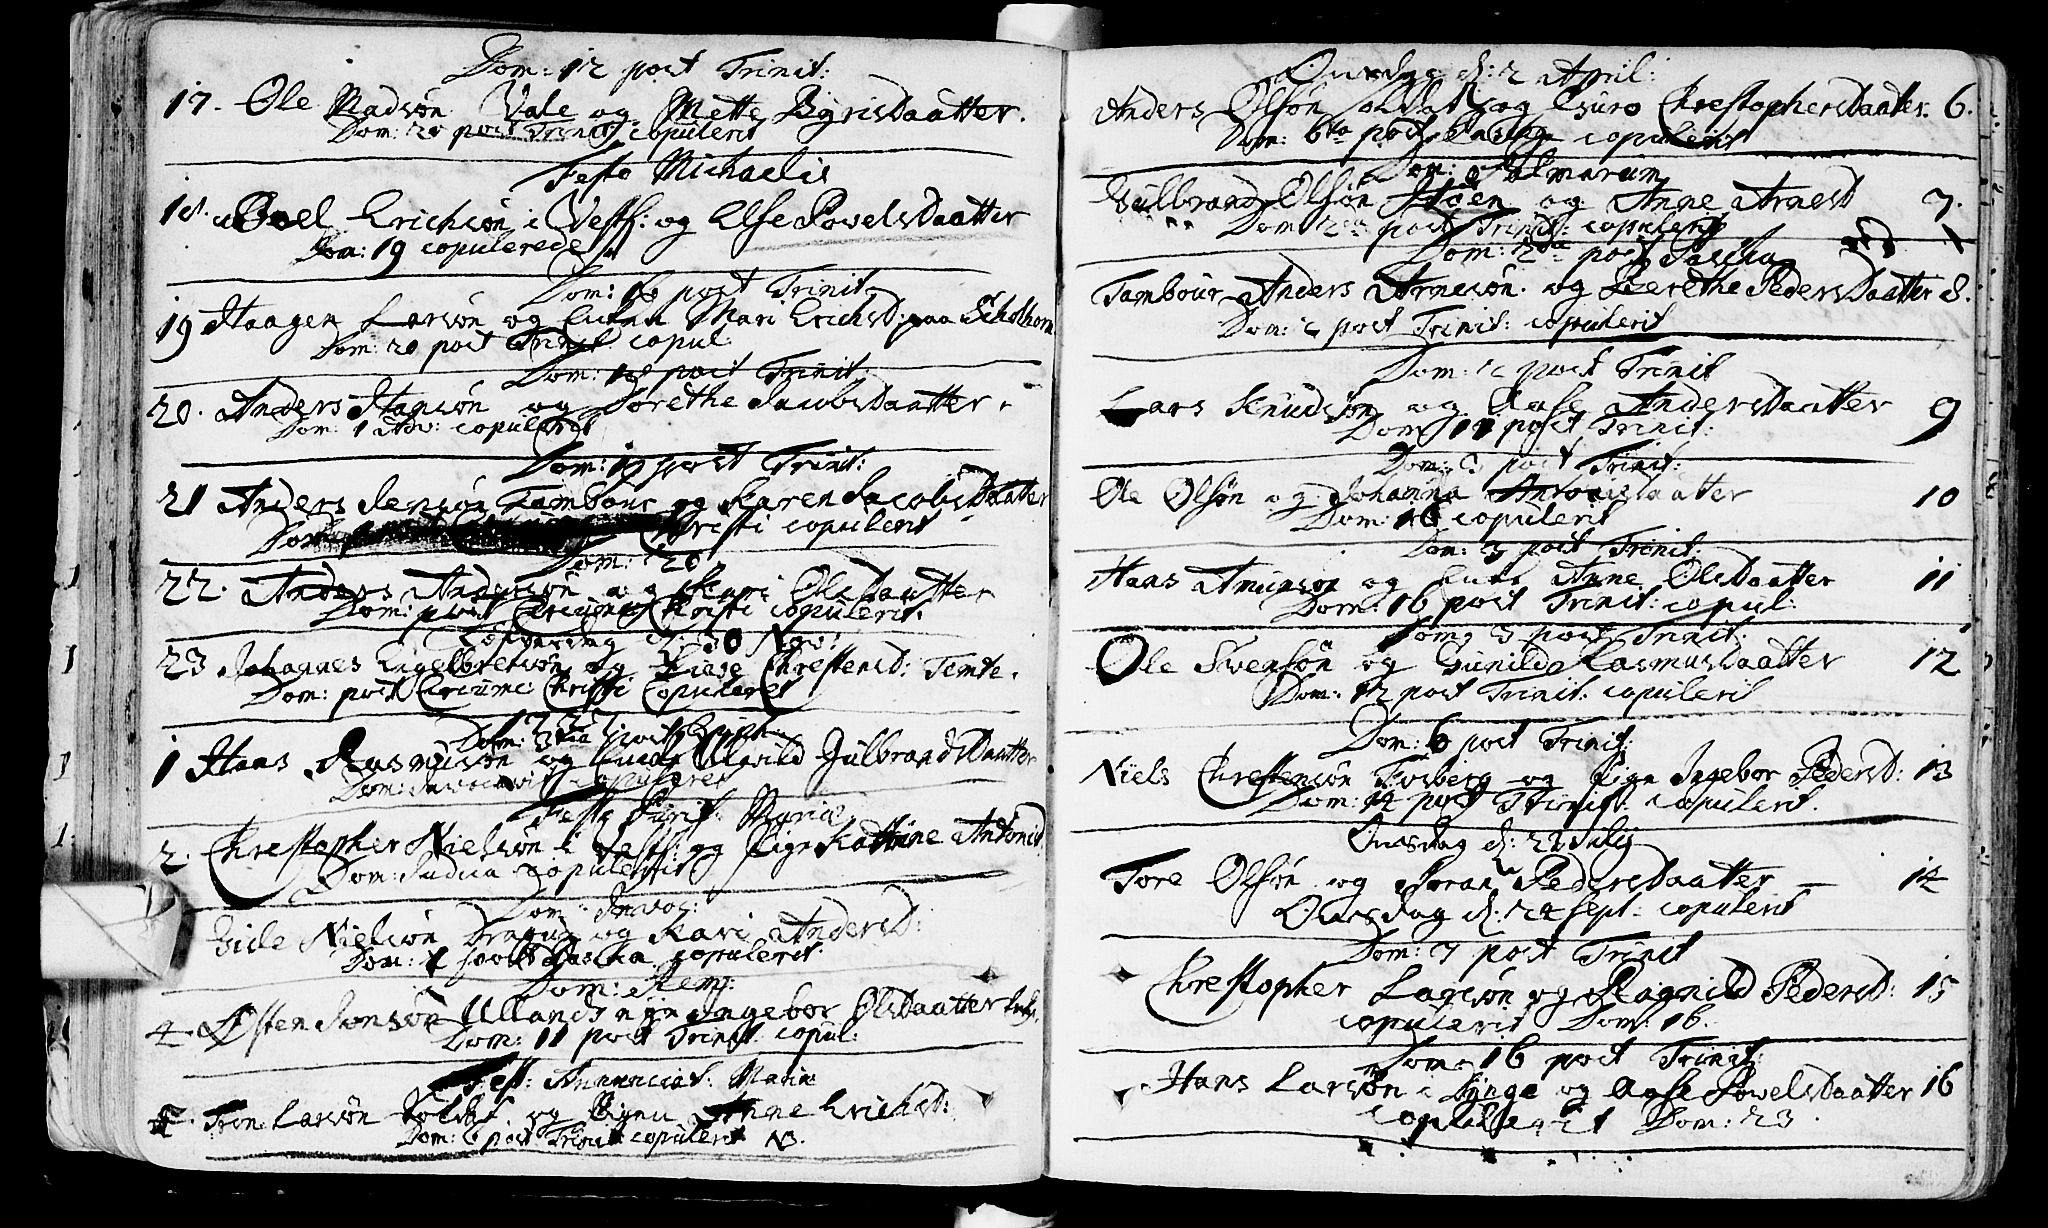 Dom: 12 post Trinit:
17. Ole Madsøn Vale og Mette Byrisdaatter.
Dom: 20 post Trinit: copulerit
Festo Michaelis
18. Poel Erichsøn i Vestf: og Else Powelsdaatter
Dom: 19 copulerede
Dom: 16 post Trinit:
19 Haagen Larsøn og Enken Mari Erichsd: paa
Dom: 20 post Trinit: copul:
Dom: 18 post Trinit:
20. Anders Hansøn og Dorethe Jacobsdaatter
Dom: 1 Adv: copuleret
Dom: 19 post Trinit:
21 Anders Jensøn Tambour og Karen Jacobsdaatter
Christi copulerit
Dom: 20
22. Anders Andersøn og Kari Olsdaatter
Dom: post Circumc: Christi copulerit.
Løfverdag d: 30 Nov:
23 Johannes Engelbretsøn og Chrestensd: Temte.
Dom: post Circumc: Christi Copuleret
Dom: 3tia post Epiph:
1 Hans Rasmusøn og Gulbrandsdaatter
Dom: Invocavit copuleret
Festo Purif: Mariæ
2. Chrestopher Nielsøn i Vestf: og Pige Kathrine Antonid:
Dom: Judica copulerit
Dom: Invoc:
Nielsøn Dragun og Kari Andersd:
Dom: 1 post Pascha copulerit
Dom: Rem:
4. Østen Jonsøn Ullands Ingebor Olsdaatter
Dom: 11 post Trinit. copul:
Fest: Annunciat: Mariæ
5. Tron Larsøn Soldat og Anne Erichsd:
Dom: 6 post Trinit: copulerit NB.
Onsdag d: 2 April:
Anders Olsøn Soldat og Guro Chrestophersdaatter. 6.
Dom: 6ta post Pascha copulerit
Dom: Palmarum
Gulbrand Olsøn og Anne Arnesd 7.
Dom 2da post Trinit: copulerit
Dom: 2da post Pascha
Tambour Anders Arnesøn og Berethe Pedersdaatter 8.
Dom: 2 post Trinit: copulerit
Dom: 2 post Trinit
Lars Knudsøn og Aase Andersdaatter 9
Dom: 11 post Trinit:
Dom: 3 post Trinit:
Ole Olsøn og Johanna Antonisdaatter 10
Dom: 16 copulerit
Dom: 3 post Trinit:
Hans Amunsøn og Anne Olsdaatter 11
Dom: 16 post Trinit: copul:
Dom: 3 post Trinit:
Ole Swensøn og Gunild Rasmusdaatter 12
Dom: 12 post Trinit: copulerit
Dom: 6 post Trinit:
Niels Chrestensøn Fosberg og Pige Ingebor Pedersd: 13
Dom: 14 post Trinit: copulerit.
Onsdag d: 22 Julij
Tore Olsøn og Joran Pedersdaatter 14
Onsdag d. 24 Sept: copulerit
Dom: 7 post Trinit
Chrestopher Larsøn og Ragnild Pedersd: 15
copulerit Dom: 16.
Dom: 16 post Trinit:
Hans Larsøn i Lynge og Aase Powelsdaatter 16
copulerit Dom: 23.